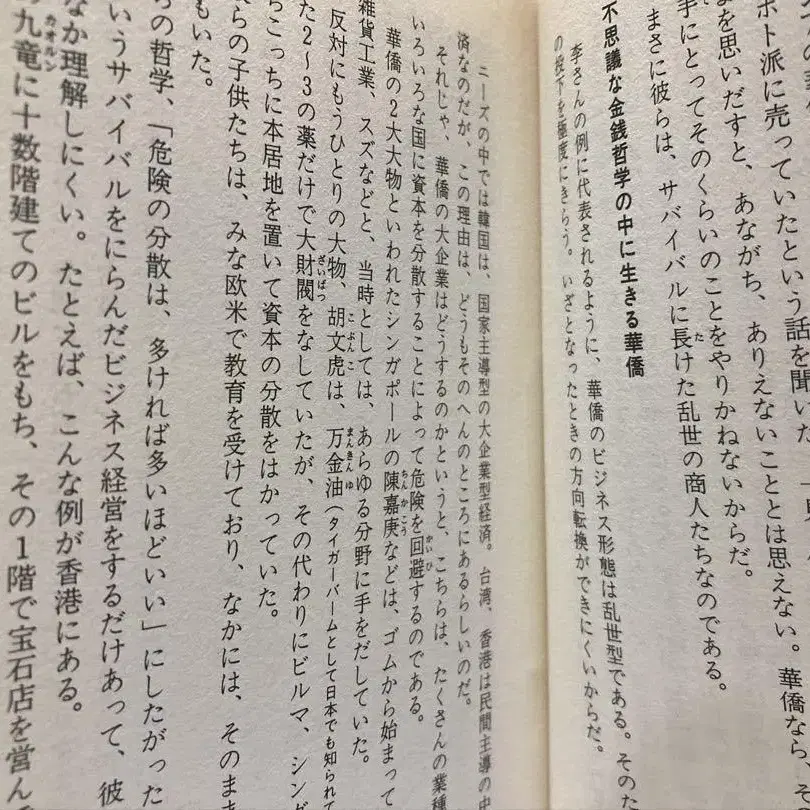 ポト派に売っていたという話を聞いた。一見
を思いだすと、あながち、ありえないこととは思えない。華僑なら、そ
手にとってそのくらいのことをやりかねないからだ。
まさに彼らは、サバイバルに長けた乱世の商人たちなのである。
不思議な金銭哲学の中に生きる華僑
李さんの例に代表されるように、華僑のビジネス形態は乱世型である。そのた
の投下を極度にきらう。いざとなったときの方向転換ができにくいからだ。
ニーズの中では韓国は、国家主導型の大企業型経済。台湾、香港は民間主導の中
済なのだが、この理由は、どうもそのへんのところにあるらしいのだ。
それじゃ、華僑の大企業はどうするのかというと、こちらは、たくさんの業種
いろいろな国に資本を分散することによって危険を回避するのである。
華僑の2大大物といわれたシンガポールの陳嘉庚などは、ゴムから始まって
雑貨工業、スズなどと、当時としては、あらゆる分野に手をだしていた。
反対にもうひとりの大物、胡文虎は、万金油（タイガーバームとして日本でも知られて
た2〜3の薬だけで大財閥をなしていたが、その代わりにビルマ、シンガ
らこっちに本居地を置いて資本の分散をはかっていた。
らの子供たちは、みな欧米で教育を受けており、なかには、そのまま
もいた。
らの哲学、「危険の分散は、多ければ多いほどいい」にしたがった
いうサバイバルをにらんだビジネス経営をするだけあって、彼
なか理解しにくい。たとえば、こんな例が香港にある。
九竜に十数階建てのビルをもち、その1階で宝石店を営んで